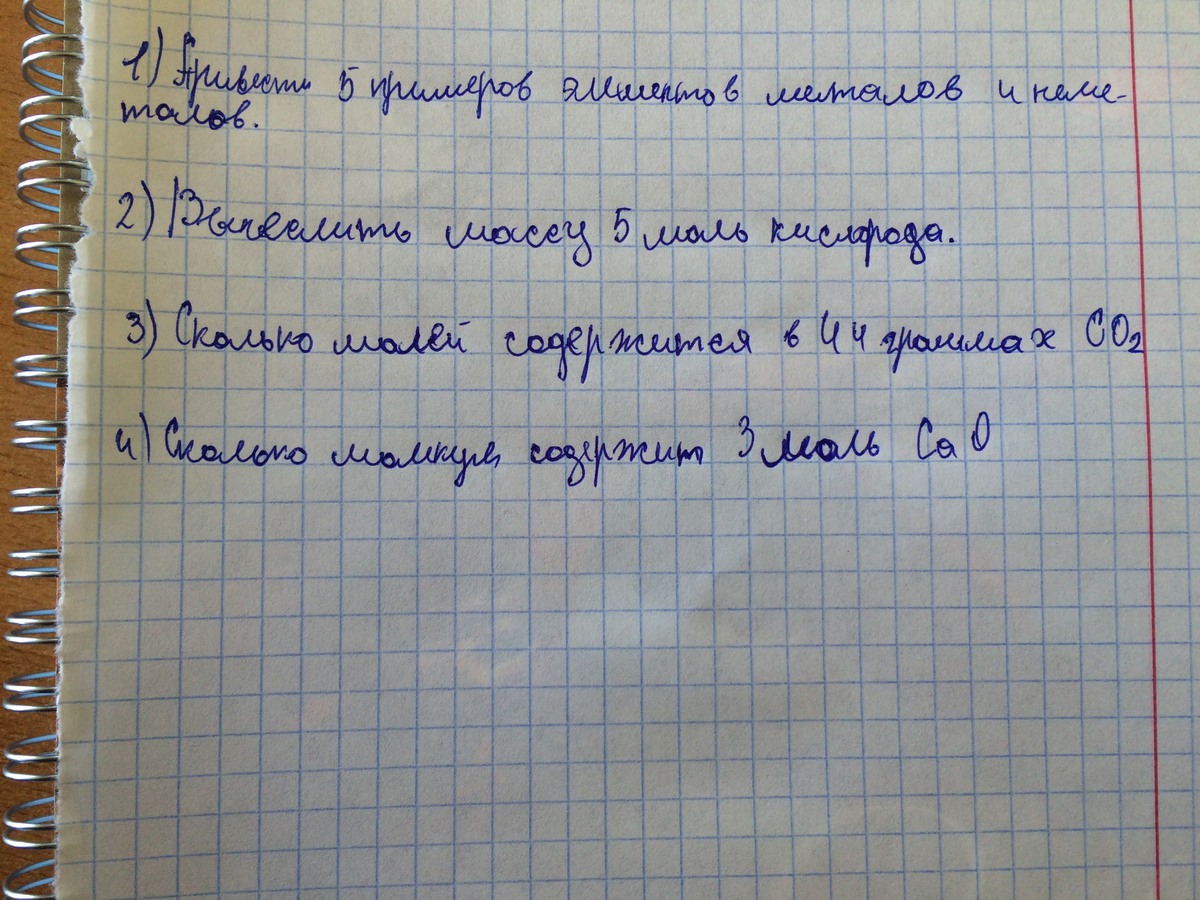 1) Привести 5 примеров элементов металов и неме-
талов.
2) Вычеслить массу 5 моль кислорода.
3) Сколько молей содержится в 44 граммах CO₂
4) Сколько молекул содержит 3 моль CaO